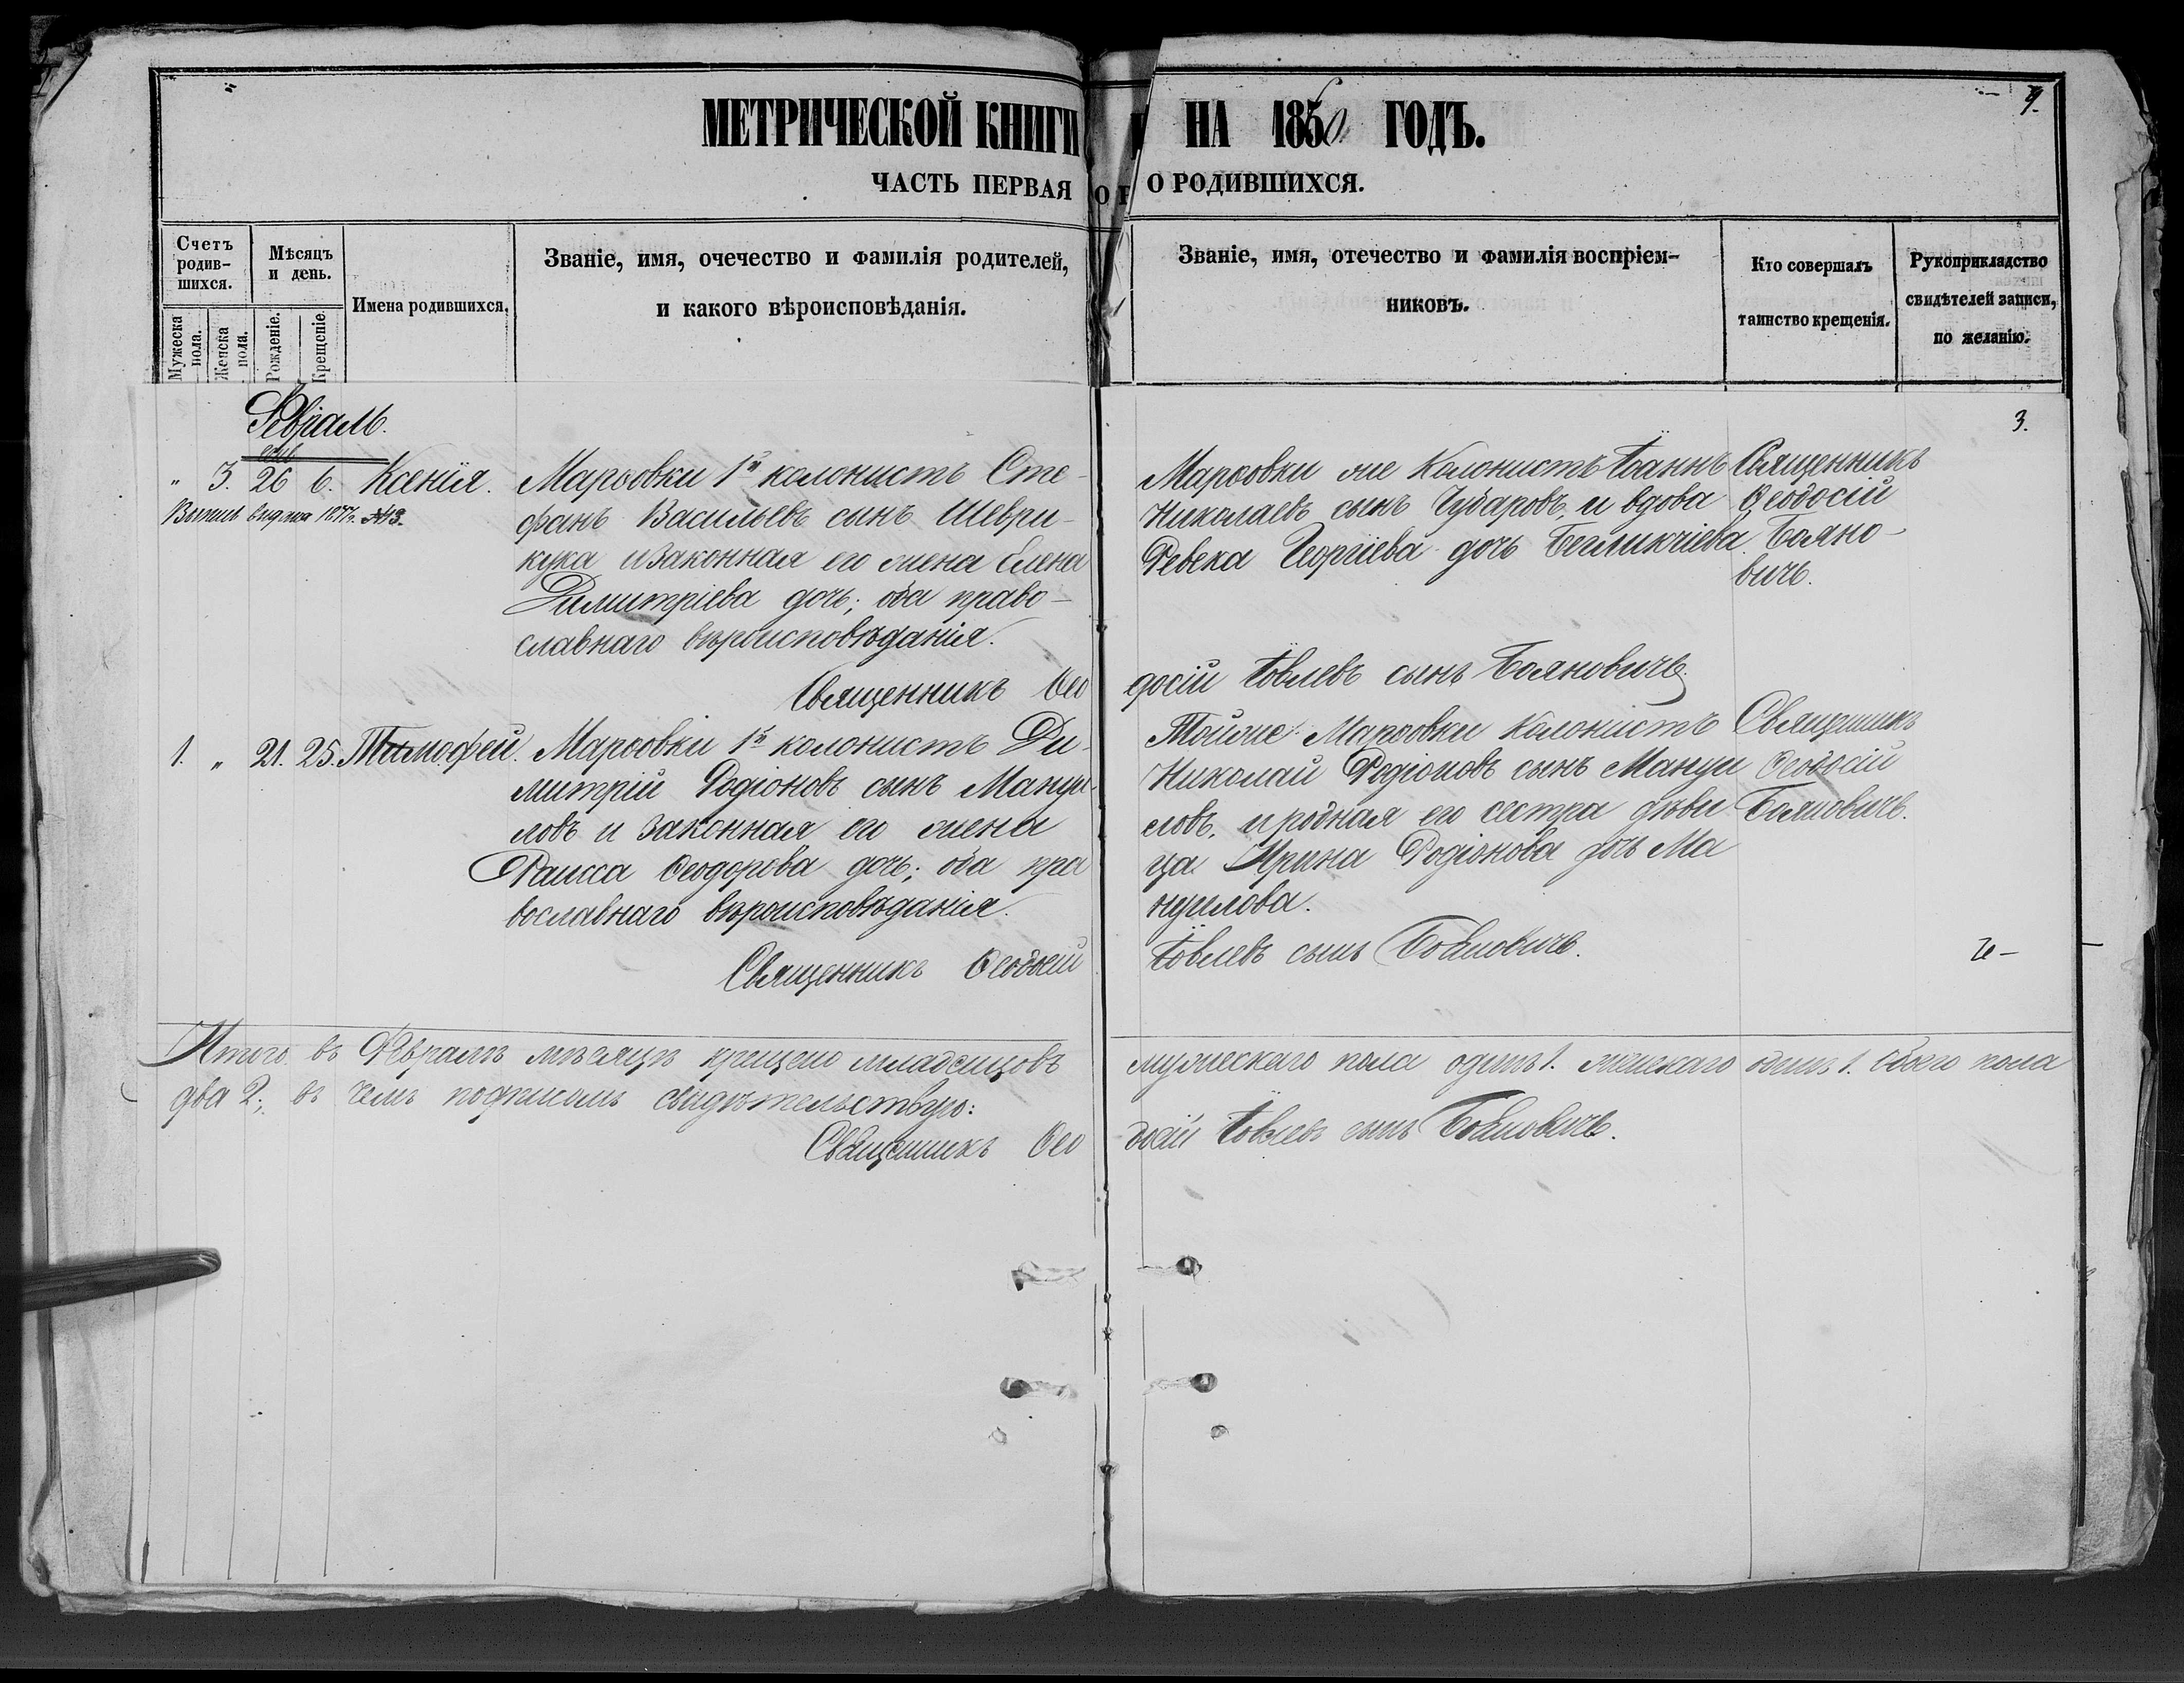 МЕТРИЧЕСКОЙ КНИГИ НА 1860 ГОДЪ.
9.
ЧАСТЬ ПЕРВАЯ О РОДИВШИХСЯ.
Счетъ родив- шихся.
Мужеска пола.
Женска пола.
Мѣсяцъ и день.
Рожденіе.
Крещеніе.
Имена родившихся.
Званіе, имя, очечество и фамилія родителей,
и какого вѣроисповѣданія.
Званіе, имя, отечество и фамилія воспріем-
никовъ.
Кто совершалъ
таинство крещенія.
Рукоприкладство
свидѣтелей записи,
по желанію.
Февраль.
3.
„ 3. 26 6. Ксенія.
Выпись выдана 1877г. №13.
Марфовки 1й колонистъ Сте-
фанъ Васильевъ сынъ Шеври-
кука и законная его жена Елена
Димитріева дочь; оба право-
славнаго вѣроисповѣданія.
Марфовки же Колонистъ Іоаннъ
Николаевъ сынъ Чубаровъ, и вдова
Ревека Георгіева дочь Бегликчіева.
Священникъ
Ѳеодосій
Бояно-
вичъ.
Священникъ Ѳео
досій Іовлевъ сынъ Бояновичъ.
1. „ 21. 25. Тимофей.
Марфовки 1й колонистъ Ди-
митрій Родіоновъ сынъ Мануи-
ловъ и законная его жена
Раисса Ѳеодорова дочь; оба пра
вославнаго вѣроисповѣданія.
Тойже Марфовки Колонистъ
Николай Родіоновъ сынъ Мануи
ловъ, и родная его сестра дѣви
ца Ирина Родіонова дочь Ма
нуилова.
Священникъ
Ѳеодосій
Бояновичъ.
Священникъ Ѳеодосій
Іовлевъ сынъ Бояновичъ.
Итого въ Февралѣ мѣсяцѣ крещено младенцовъ
мужескаго пола одинъ 1. женскаго одинъ 1. Обоего пола
два 2; въ чемъ подписомъ свидѣтельствую:
Священникъ Ѳео
досій Іовлевъ сынъ Бояновичъ.